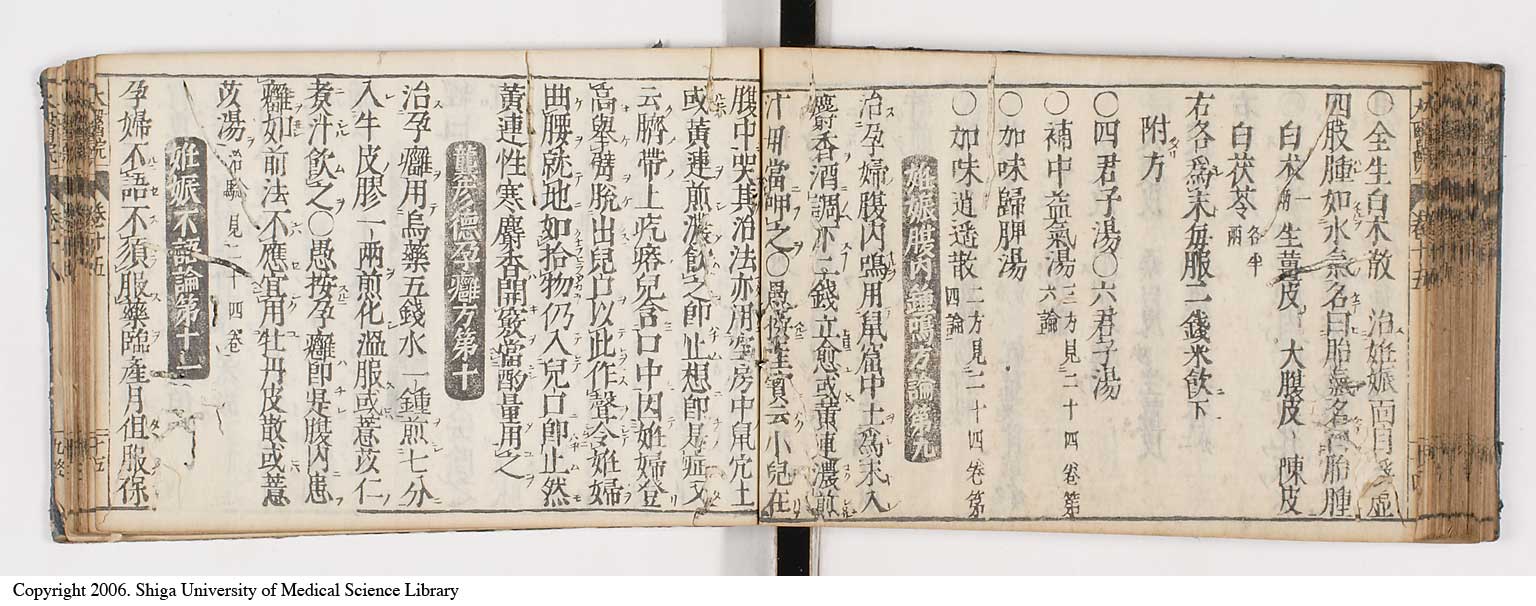 ○全生白朮散 治妊娠面目虛
四肢腫如水氣名曰胎氣名胎腫
白朮一兩 生薑皮 大腹皮 陳皮
白茯苓各半兩
右各爲末每服二錢米飲下
附方
○四君子湯○六君子湯
○補中益氣湯三方見二十四卷第六論
○加味歸脾湯
○加味逍遙散二方見二十四卷第四論
妊娠腹內鍾鳴方論第九
治孕婦腹內鳴用鼠窟中土爲末入
麝香酒調下二錢立愈或黃連濃煎
汁用當呷之○愚按産寶云小兒在
腹中哭其治法亦用空房中鼠穴土
或黃連煎濃飲之即止想即是症又
云臍帶上疙瘩兒含口中因妊婦登
高舉臂脫出兒口以此作聲令妊婦
曲腰就地如拾物仍入兒口即止然
黃連性寒麝香開竅當酌量用之
龔彦德孕癰方第十
治孕癰用烏藥五錢水一鍾煎七分
入牛皮膠一兩煎化溫服或薏苡仁
煮汁飲之○愚按孕癰即是腹內患
癰如前法不應宜用牡丹皮散或薏
苡湯治驗見二十四卷
妊娠不語論第十一
孕婦不語不須服藥臨產月但服保
Copyright 2006. Shiga University of Medical Science Library